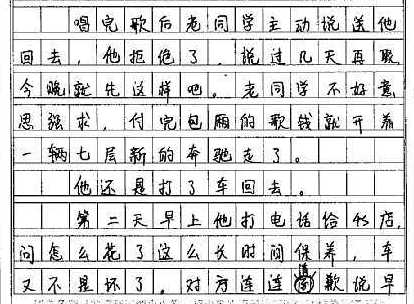 唱完歌后老同学主动说送他
回去，他拒绝了，说过几天再聚
今晚就先这样吧。老同学不好意
思强求，付完包厢的歌钱就开着
一辆七层新的奔驰走了。
他还是打了车回去。
第二天早上他打电话给4S店，
问怎么花了这么长时间保养，车
又不是坏了。对方连连道歉说早